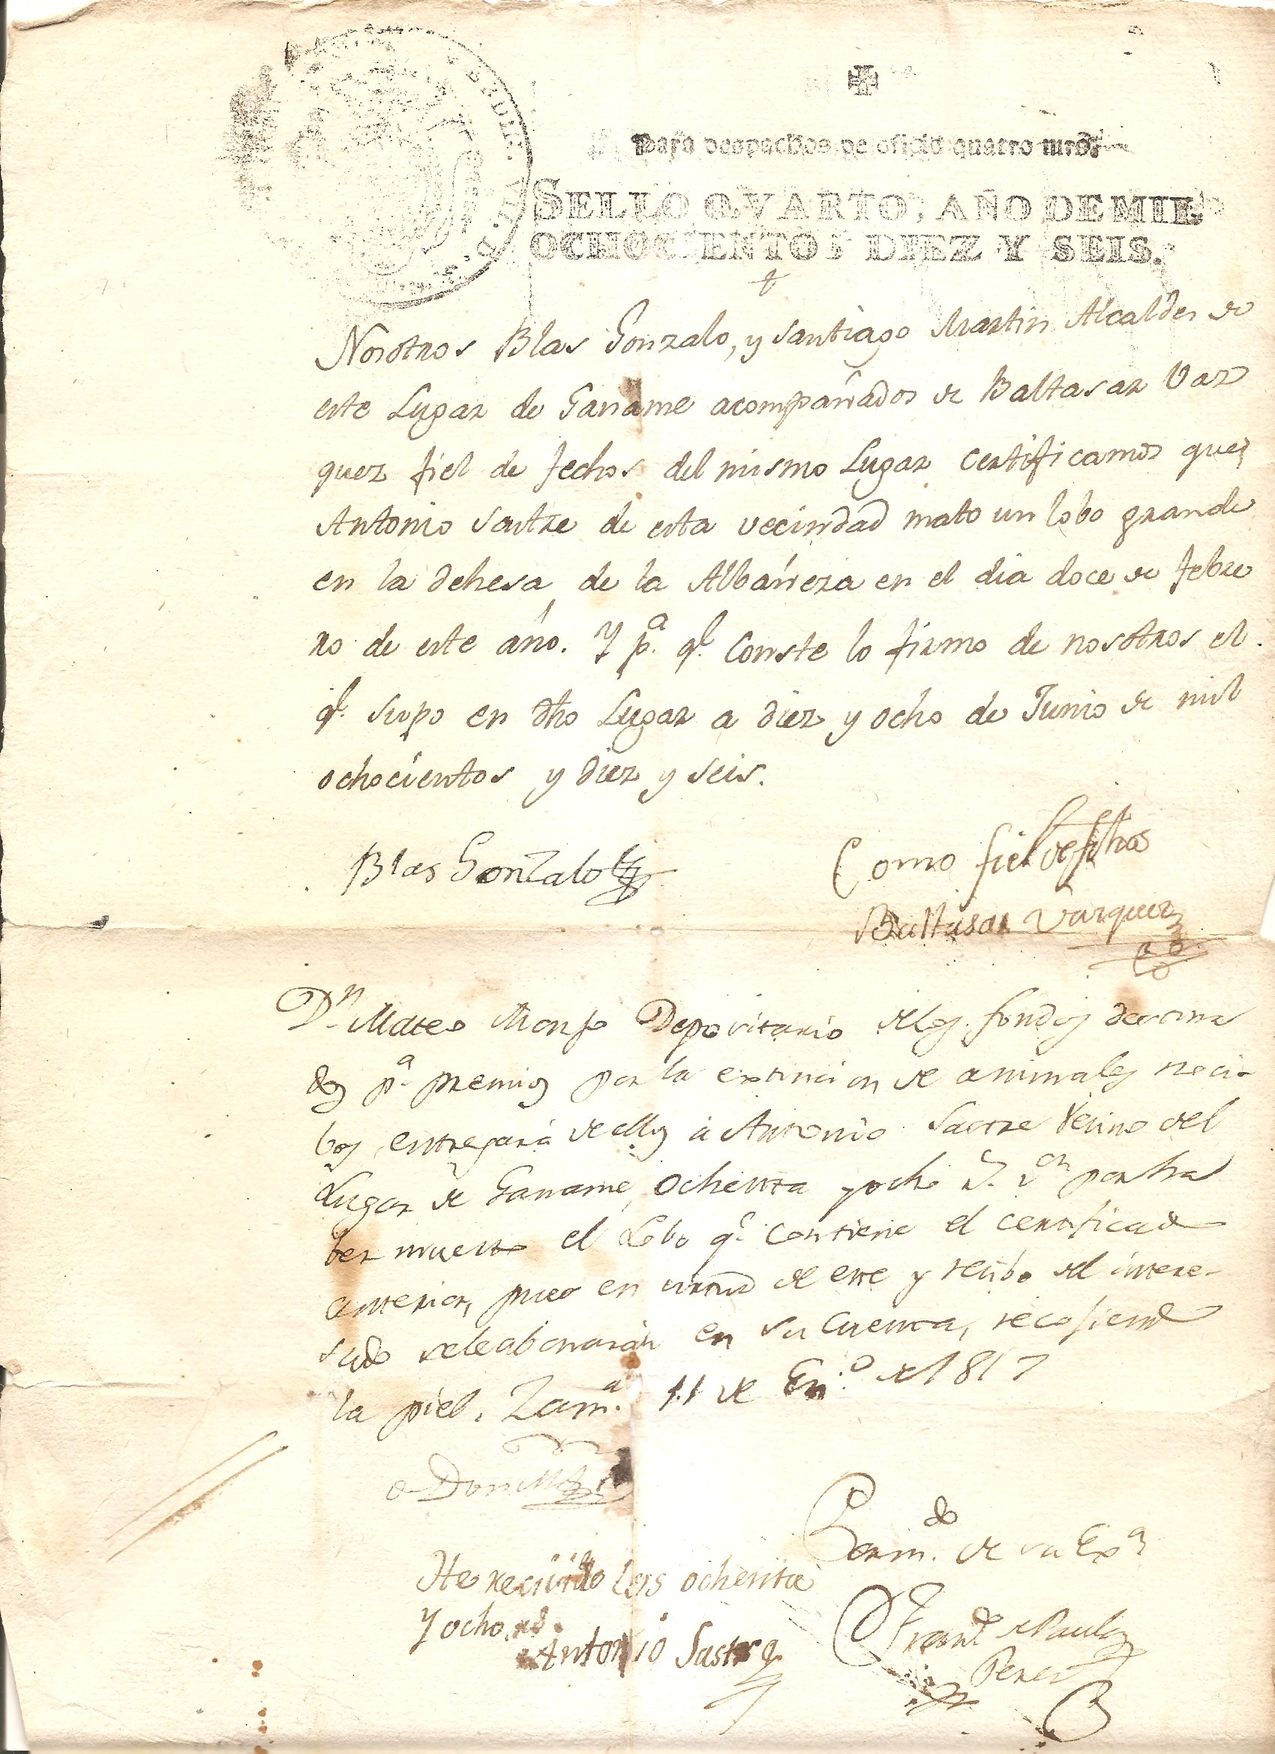 Para despachos de oficio quatro mrs.
SELLO QVARTO, AÑO DE MIL
OCHOCIENTOS DIEZ Y SEIS.
Nosotros Blas Gonzalo, y Santiago Martin Alcaldes de
este Lugar de Gañame acompañados de Baltasar Vaz
quez fiel de fechos del mismo Lugar certificamos que
Antonio Sastre de esta vecindad mato un lobo grande
en la dehesa de la Albañeza en el dia doce de Febre
ro de este año. Y pª. qe. Conste lo firmo de nosotros el
qe. Supo en dho Lugar a diez y ocho de Junio de mil
ochocientos y diez y seis.
Blas Gonzalo
Como fiel de fhos
Baltasar Vazquez
Dn. Mateo Monje Depositario de los fondos destina
dos pª. premios por la extincion de animales noci-
bos entregará de ellos á Antonio Sastre Vecino del
Lugar de Gañame, ochenta y ocho rs. von por ha
ber muerto el Lobo qe. contiene el certificado
anterior, pues en virtud de este y recibo del intere-
sado se le abonarán en su cuenta, recogiendo
la piel. Zamª. 11 de Enº. de 1817
Permdo. de su Exª
Franco de Paula
Perez
He recivido los ochenta
Y ocho rs.
Antonio Sastre